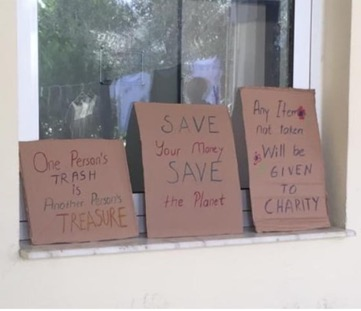 One Person's
TRASH
is
Another Person's
TREASURE
SAVE
Your Money
SAVE
the Planet
Any Item
not taken
Will be
GIVEN
TO
CHARITY